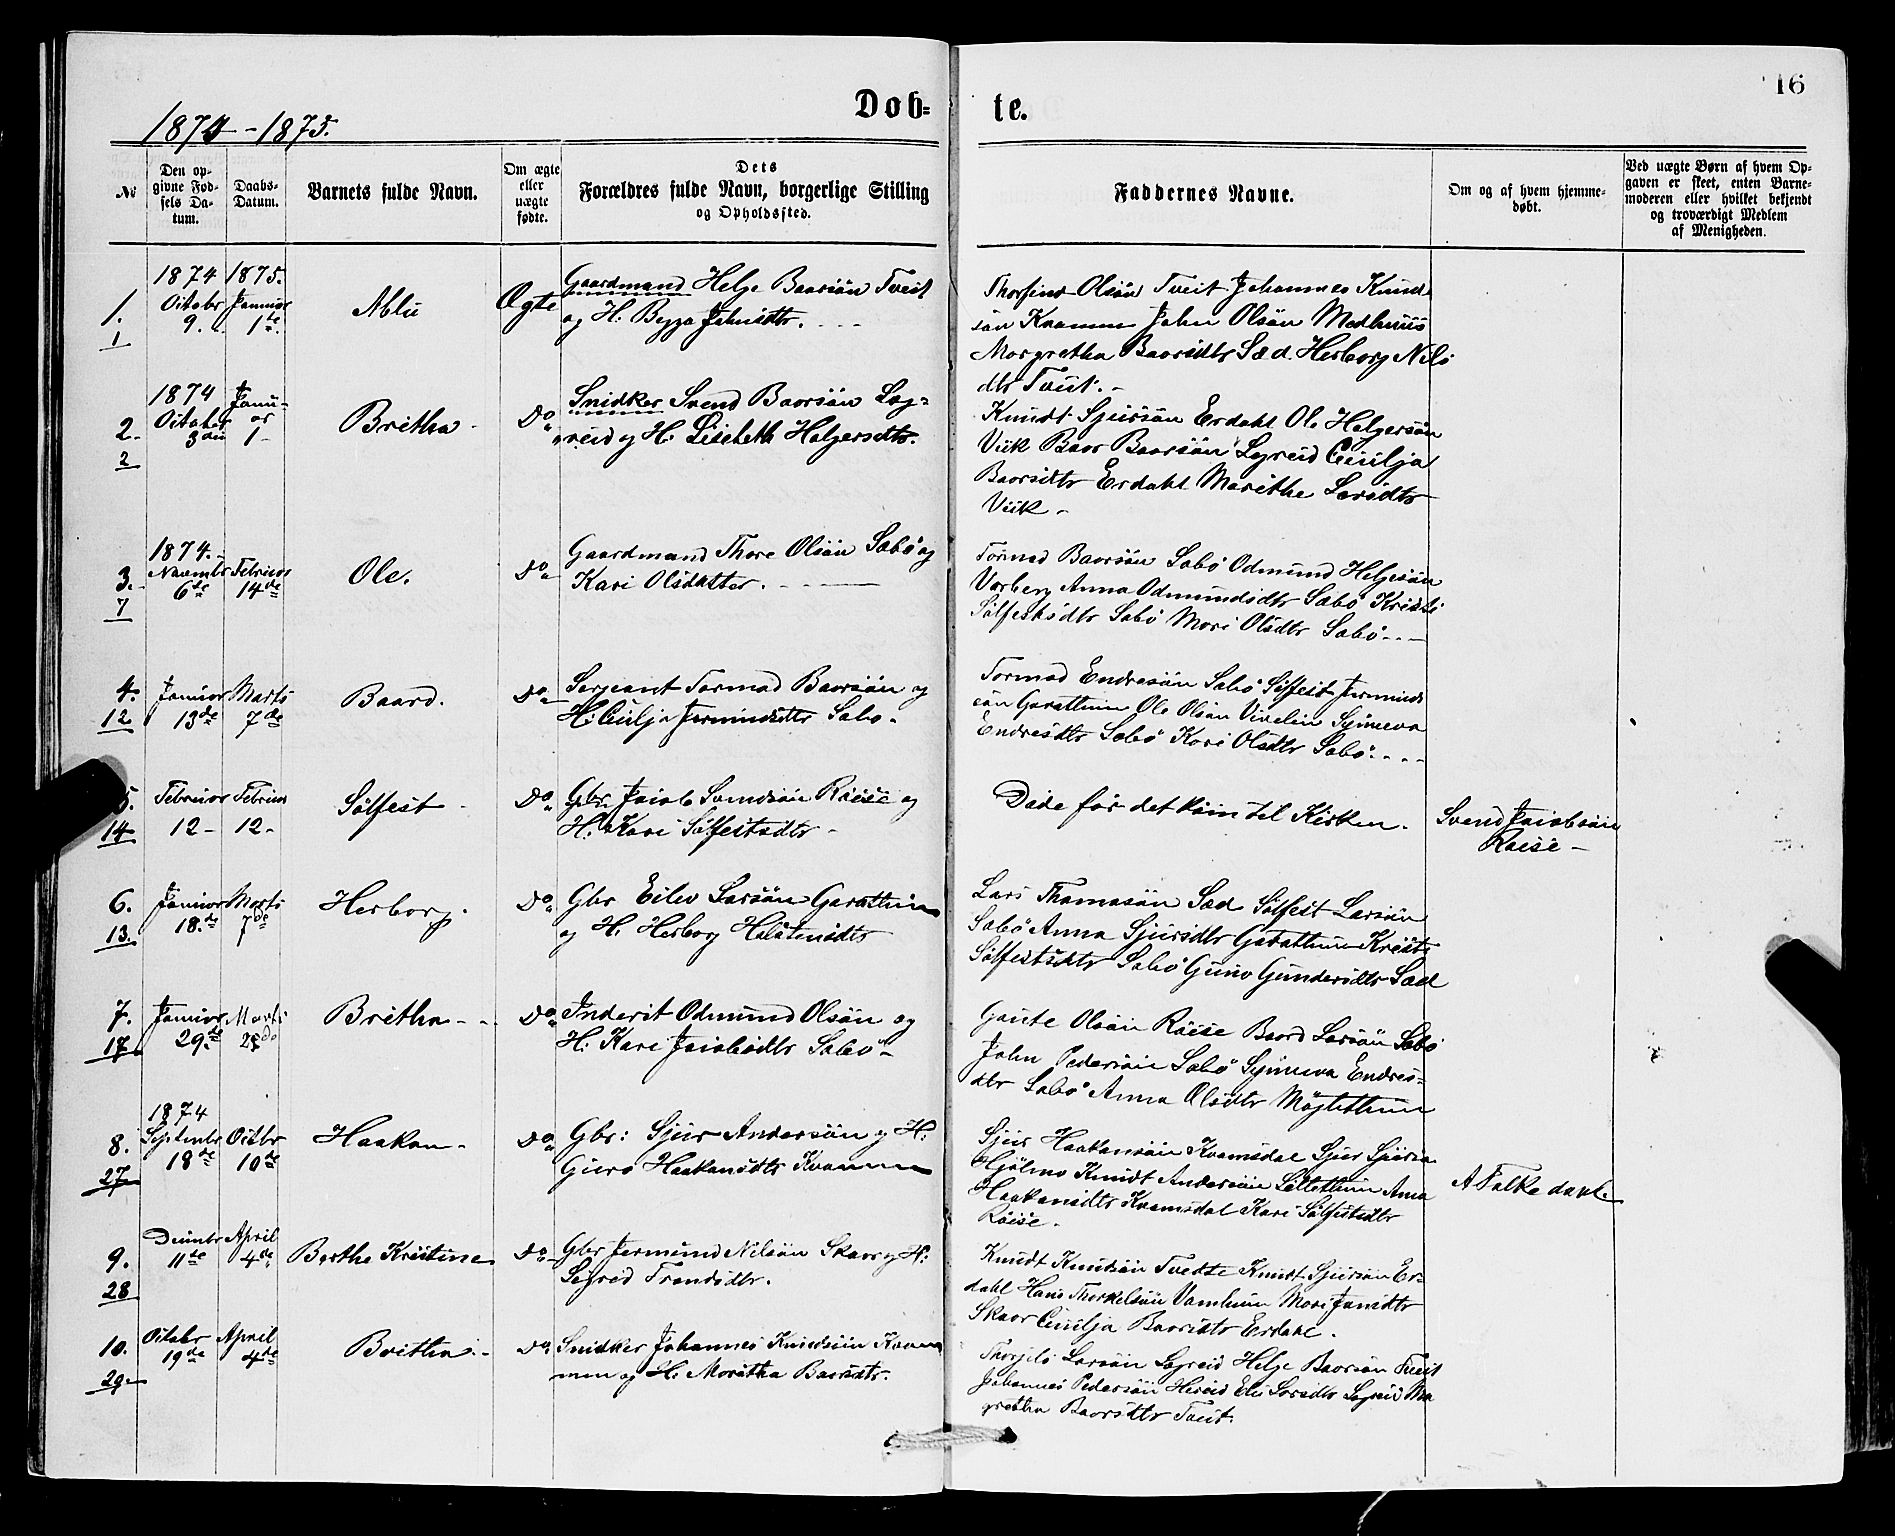 16
Døb=
te.
1874-1875.
No
Den op-
givne Fød-
sels Da-
tum.
Daabs-
Datum.
Barnets fulde Navn.
Om ægte
eller
uægte
fødte.
Dets
Forældres fulde Navn, borgerlige Stilling
og Opholdssted.
Faddernes Navne.
Om og af hvem hjemme-
døbt.
Ved uægte Børn af hvem Op-
gaven er skeet, enten Barne-
moderen eller hvilket bekjendt
og troværdigt Medlem
af Menigheden.
1.
1
1874
Octobr
9.
1875.
Januar
1te
Ablu
Ægte
Gaardmand Helge Baarsön Tveit
og H: Bygga Johnsdtr.
Thorfind Olsön Tveit Johannes Knud
sön Kvamm John Olsön Medhuus
Margretha Baarsdtr Sæd. Herborg Nils
dtr Tveit.-
2.
2
1874
Octobr
3die
Janu-
ar
1-
Britha
Do
Snidker Svend Baarsön Leg=
reid og H: Lisebeth Helgersdtr.
Knudt Sjursön Erdahl Ole Helgersön
Viik Baar Baarsön Legreid Cicilja
Baarsdtr Erdahl Marithe Larsdtr
Viik -
3.
7
1874.
Novembr
6te
Februar
14de
Ole.
Do
Gaardmand Thore Olsön Sæbö og
Kari Olsdatter.
Tormod Baarsön Sæbö Odmund Helgesön
Varberg Anna Odmundsdtr Sæbö Kristi
Sölfestsdtr Sæbö Mari Olsdtr Sæbö
4.
12
Januar
13de
Marts
7de
Baard.
Do
Sergeant Tormod Baarsön og
H: Cicilja Jermundsdtr Sæbö.
Tormod Endresön Sæbö Sölfest Jermund
sön Garatthun Ole Olsön Vivelin Synneva
Endresdtr Sæbö Kari Olsdtr Sæbö
5.
14
Februar
12-
Februar
12-
Sölfest
Do
Gbr. Jacob Svendsön Röise og
H: Kari Sölfestsdtr -
Döde för det kom til Kirken.
Svend Jacobsön
Röise -
6.
13
Januar
18de
Marts
7de
Herborg.
Do
Gbr Eilev Larsön Garatthun
og H. Herborg Halstensdtr
Lars Thomasön Sæd Sölfest Larsön
Sæbö Anna Sjursdtr Garatthun Kristi
Sölfestsdtr Sæbö Guro Gundersdtr Sæd
7.
17
Januar
29de
Marts
Britha
Do
Inderst Odmund Olsön og
H: Kari Jacobsdtr Sæbö -
Gaute Olsön Röise Baard Larsön Sæbö
John Pedersön Sæbö Synneva Endres=
dtr Sæbö Anna Olsdtr Mögletthun
8.
27
1874
Septembr
18de
Octbr
10de
Haakon -
Do
Gbr: Sjur Andersön og H:
Guro Haakonsdtr Kvamm
Sjur Haakonsön Kvamsdal Sjur Sjursn
Hjölmo Knudt Andersön Lilletthun Anna
Haakonsdtr Kvamsdal Kari Sölfestsdtr
Röise.
A Falkedal
9.
28
Decmbr
11te
April
4de
Berthe Kristine
Do
Gbr Jermund Nilsön Skaar og H:
Sigrid Trondsdtr.
Knudt Knudsön Tvedte Knudt Sjursön Er=
dahl Hans Therkelsön Vamhun Mari Jonsdtr
Skaar Cicilja Baarsdtr Erdahl.
10.
29
Octobr
19de
April
4de
Britha
Do
Snidker Johannes Knudsön Kvam
men og H: Maritha Baarsdtr.
Thorgils Larsön Legreid Helge Baarsön Tveit
Johannes Pedersön Hereid Eli Larsdtr Legreid Ma
gretha Baarsdtr Tveit.